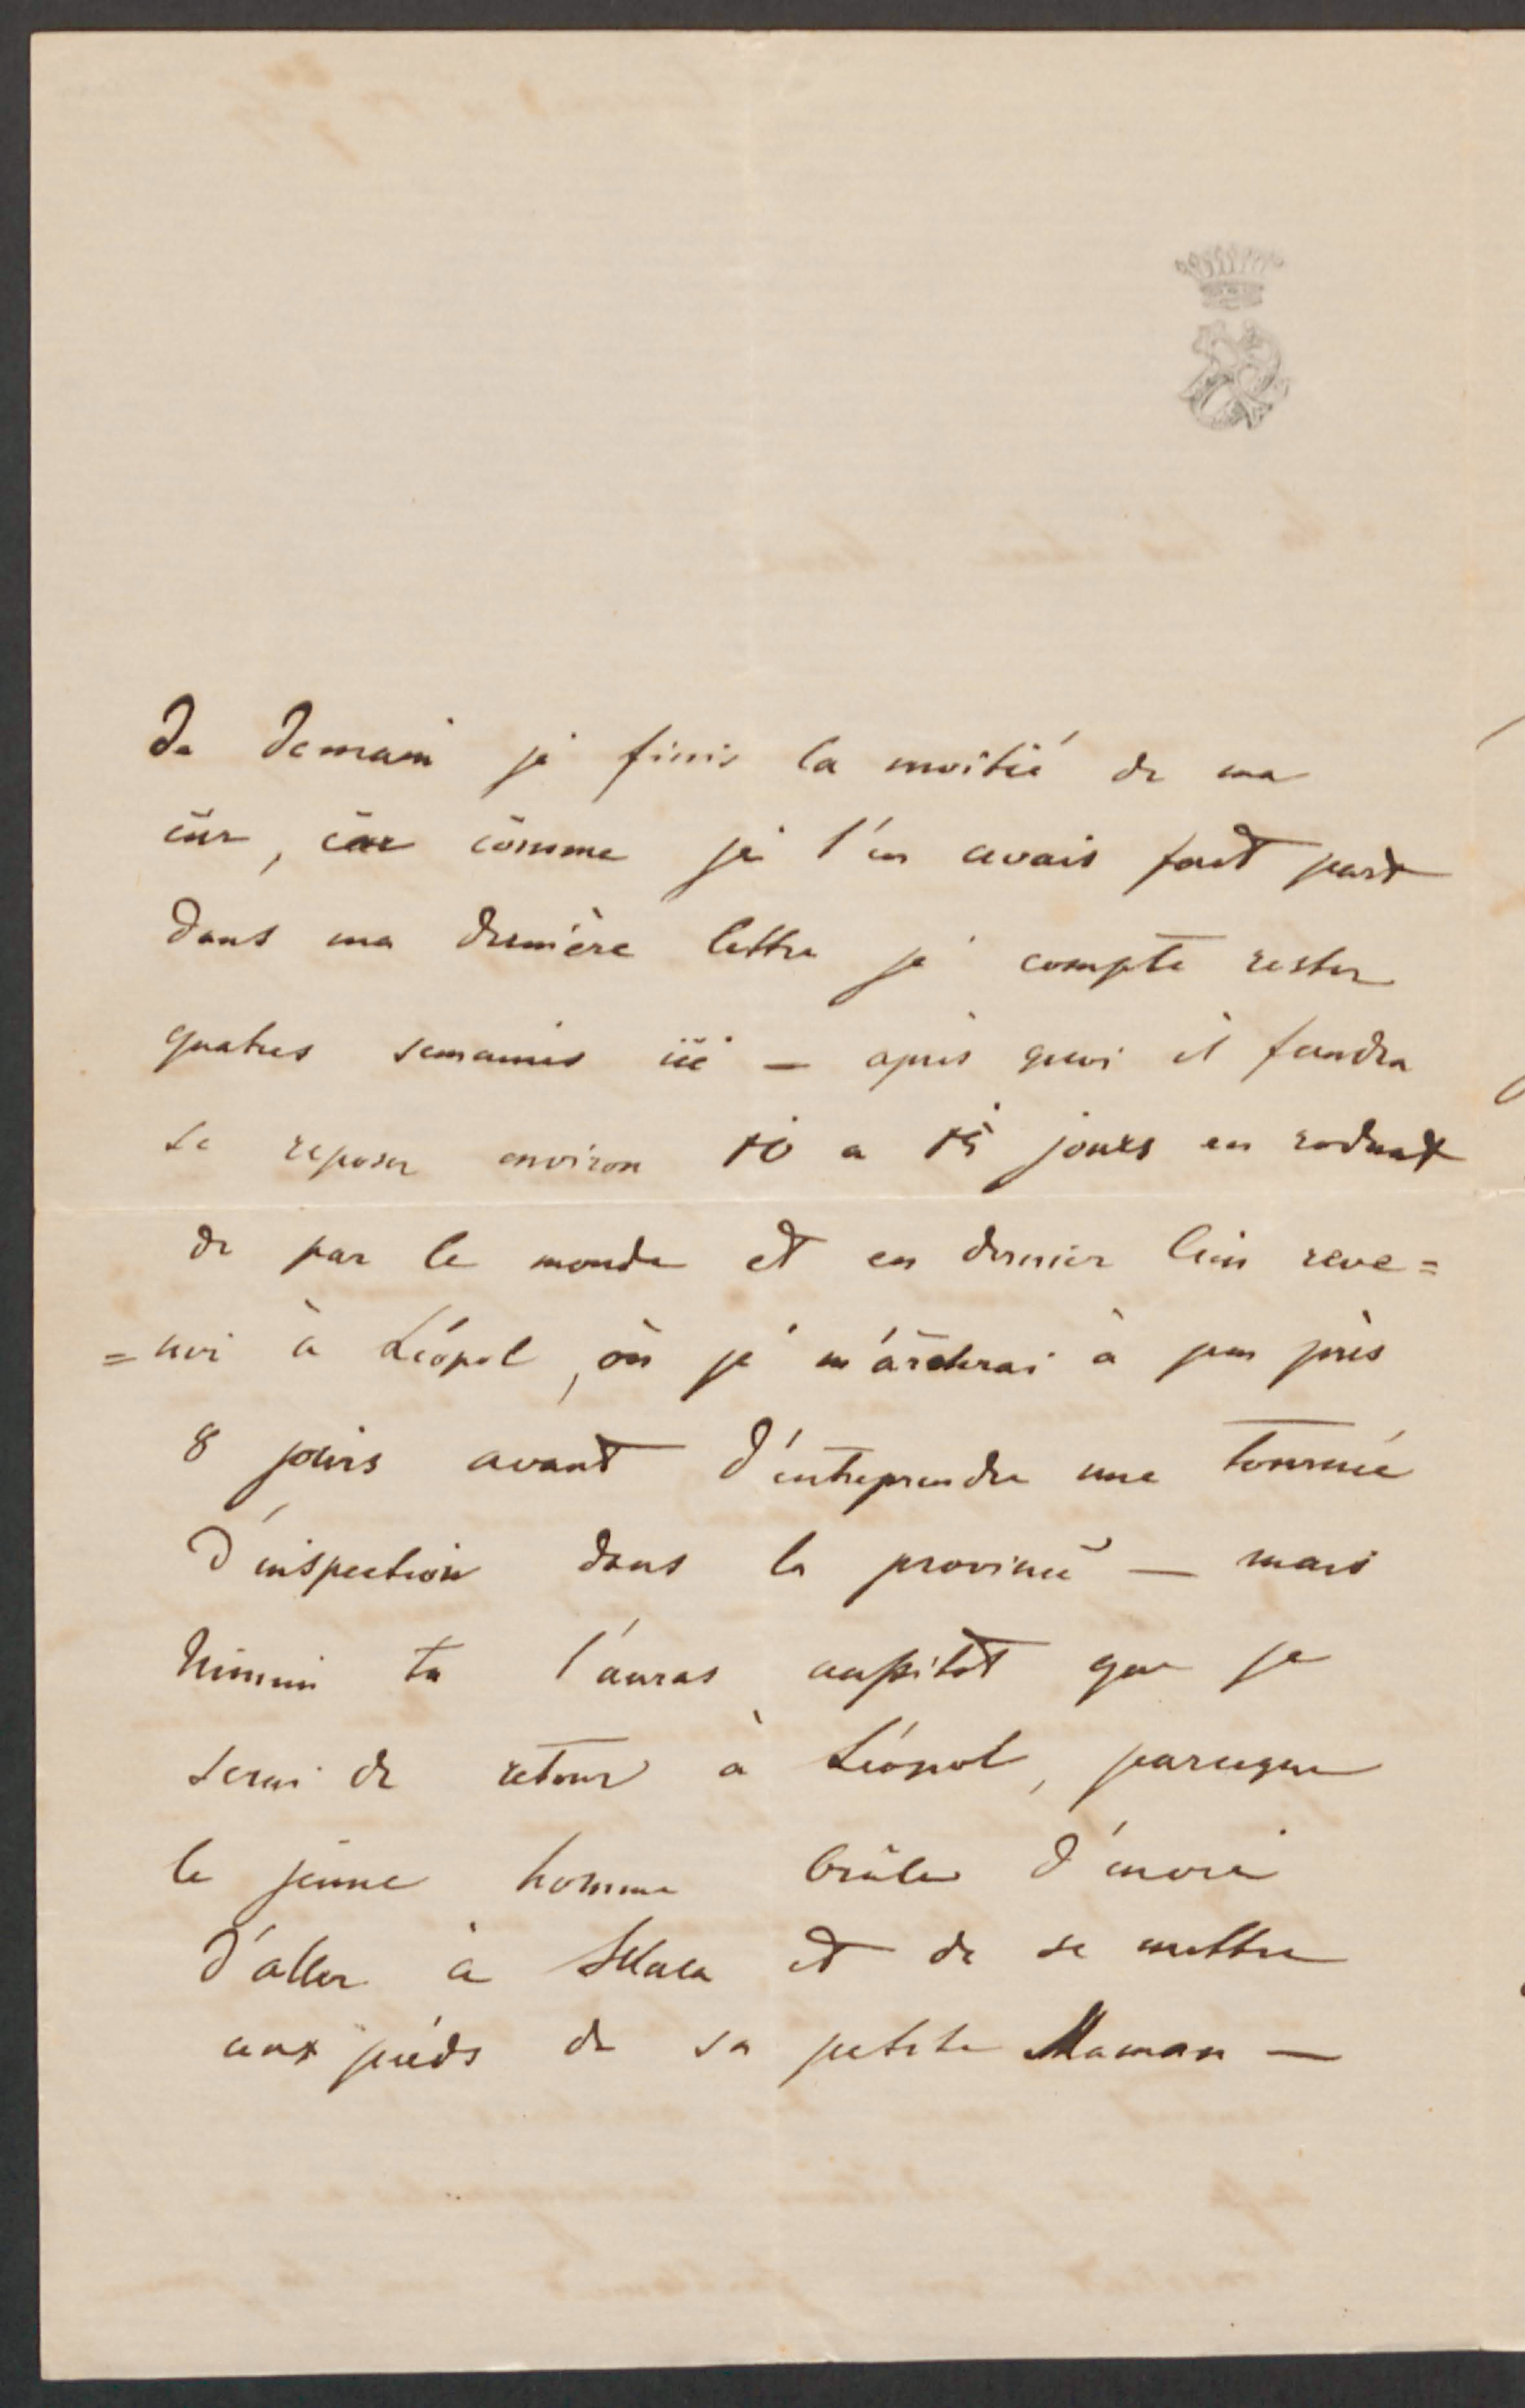 De demain je finis la moitié de ma
cure, car comme je t'en avais fait part
dans ma dernière lettre je compte rester
quatres semaines ici — après quoi il faudra
se reposer environ 10 a 15 jours en
de par le monde et en dernier lieu reve=
=nir à Léopol, où je m'arêterai à peu près
8 jours avant d'entreprendre une tournée
d'inspection dans la province — mais
Nimini tu l'auras aussitôt que je
serai de retour à Léopol, parceque
le jeune homme brûle d'envie
d'aller à Skala et de se mettre
aux pieds de sa petite Maman —